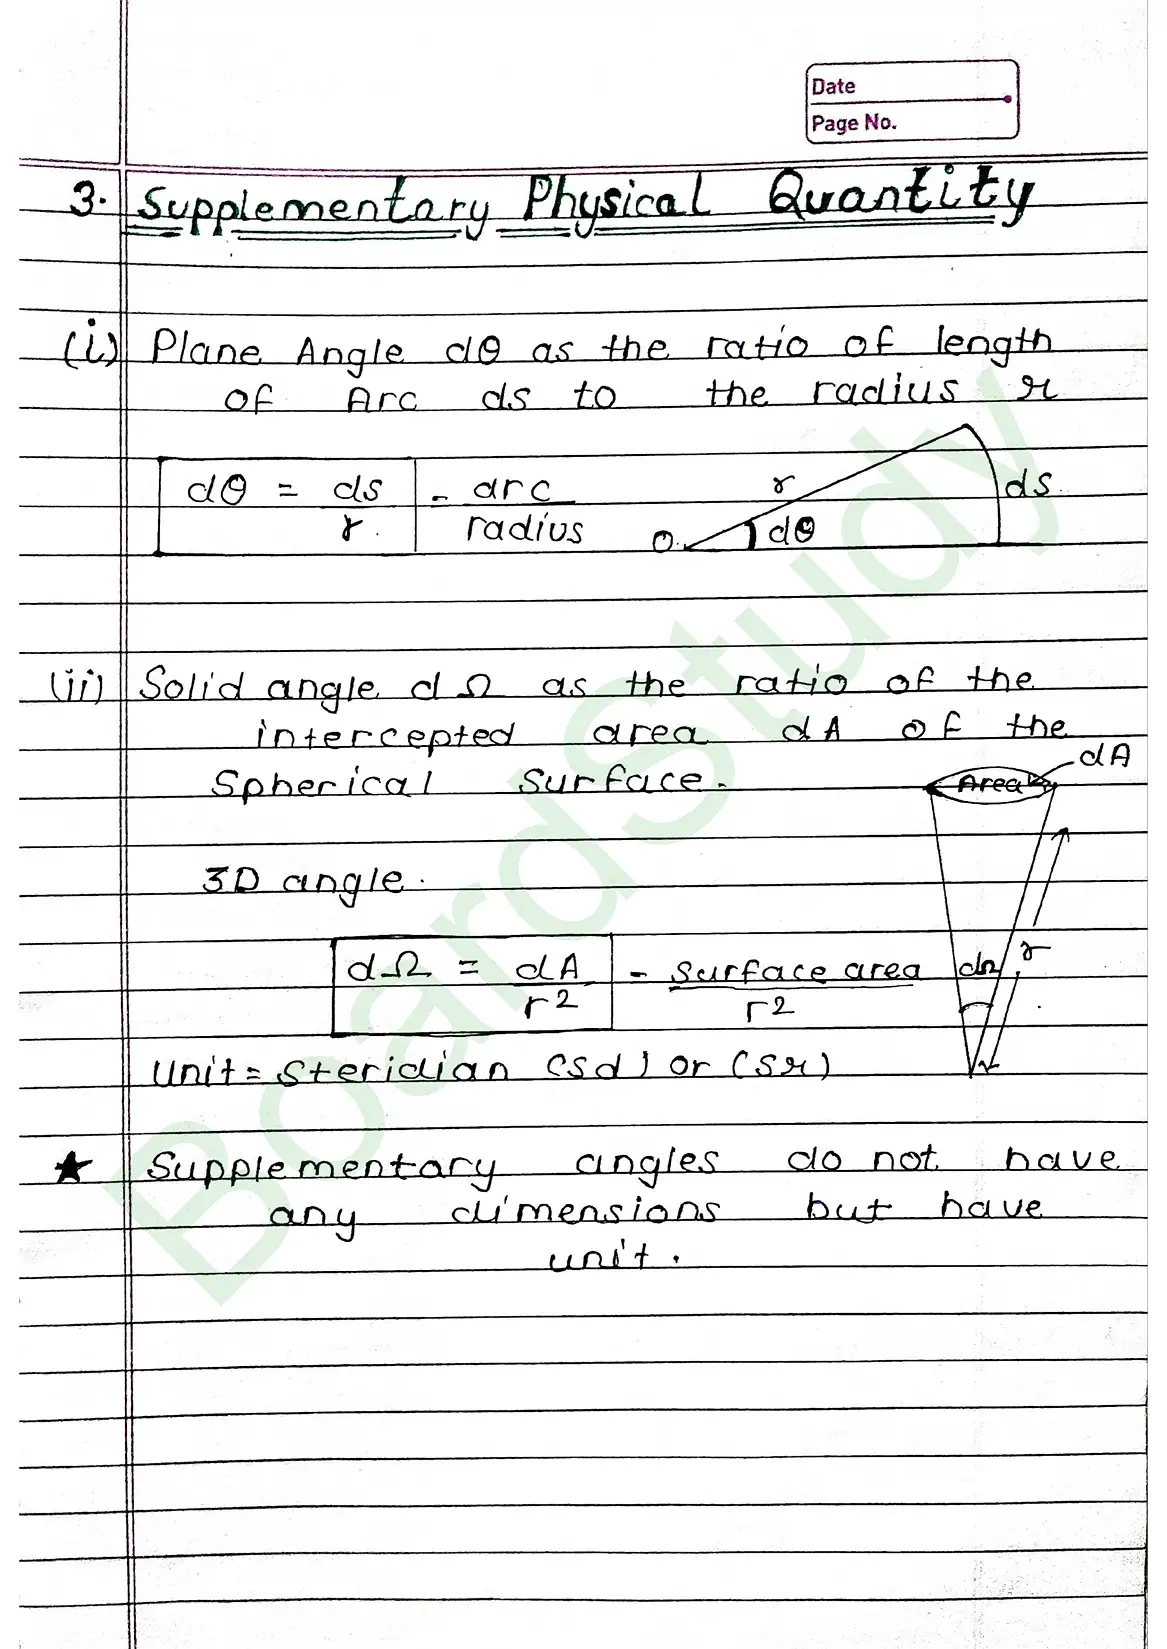 Date
Page No.
3. Supplementary Physical Quantity
(i) Plane Angle dθ as the ratio of length
of Arc ds to the radius r
dθ = ds/r = arc/radius
r
ds
O
dθ
(ii) Solid angle dΩ as the ratio of the
intercepted area dA of the
Spherical Surface.
dA
Area
3D angle.
dΩ = dA/r² = Surface area/r²
dΩ
r
Unit = Steridian (Sd) or (Sr)
★ Supplementary angles do not have
any dimensions but have
unit.
BoardStudy